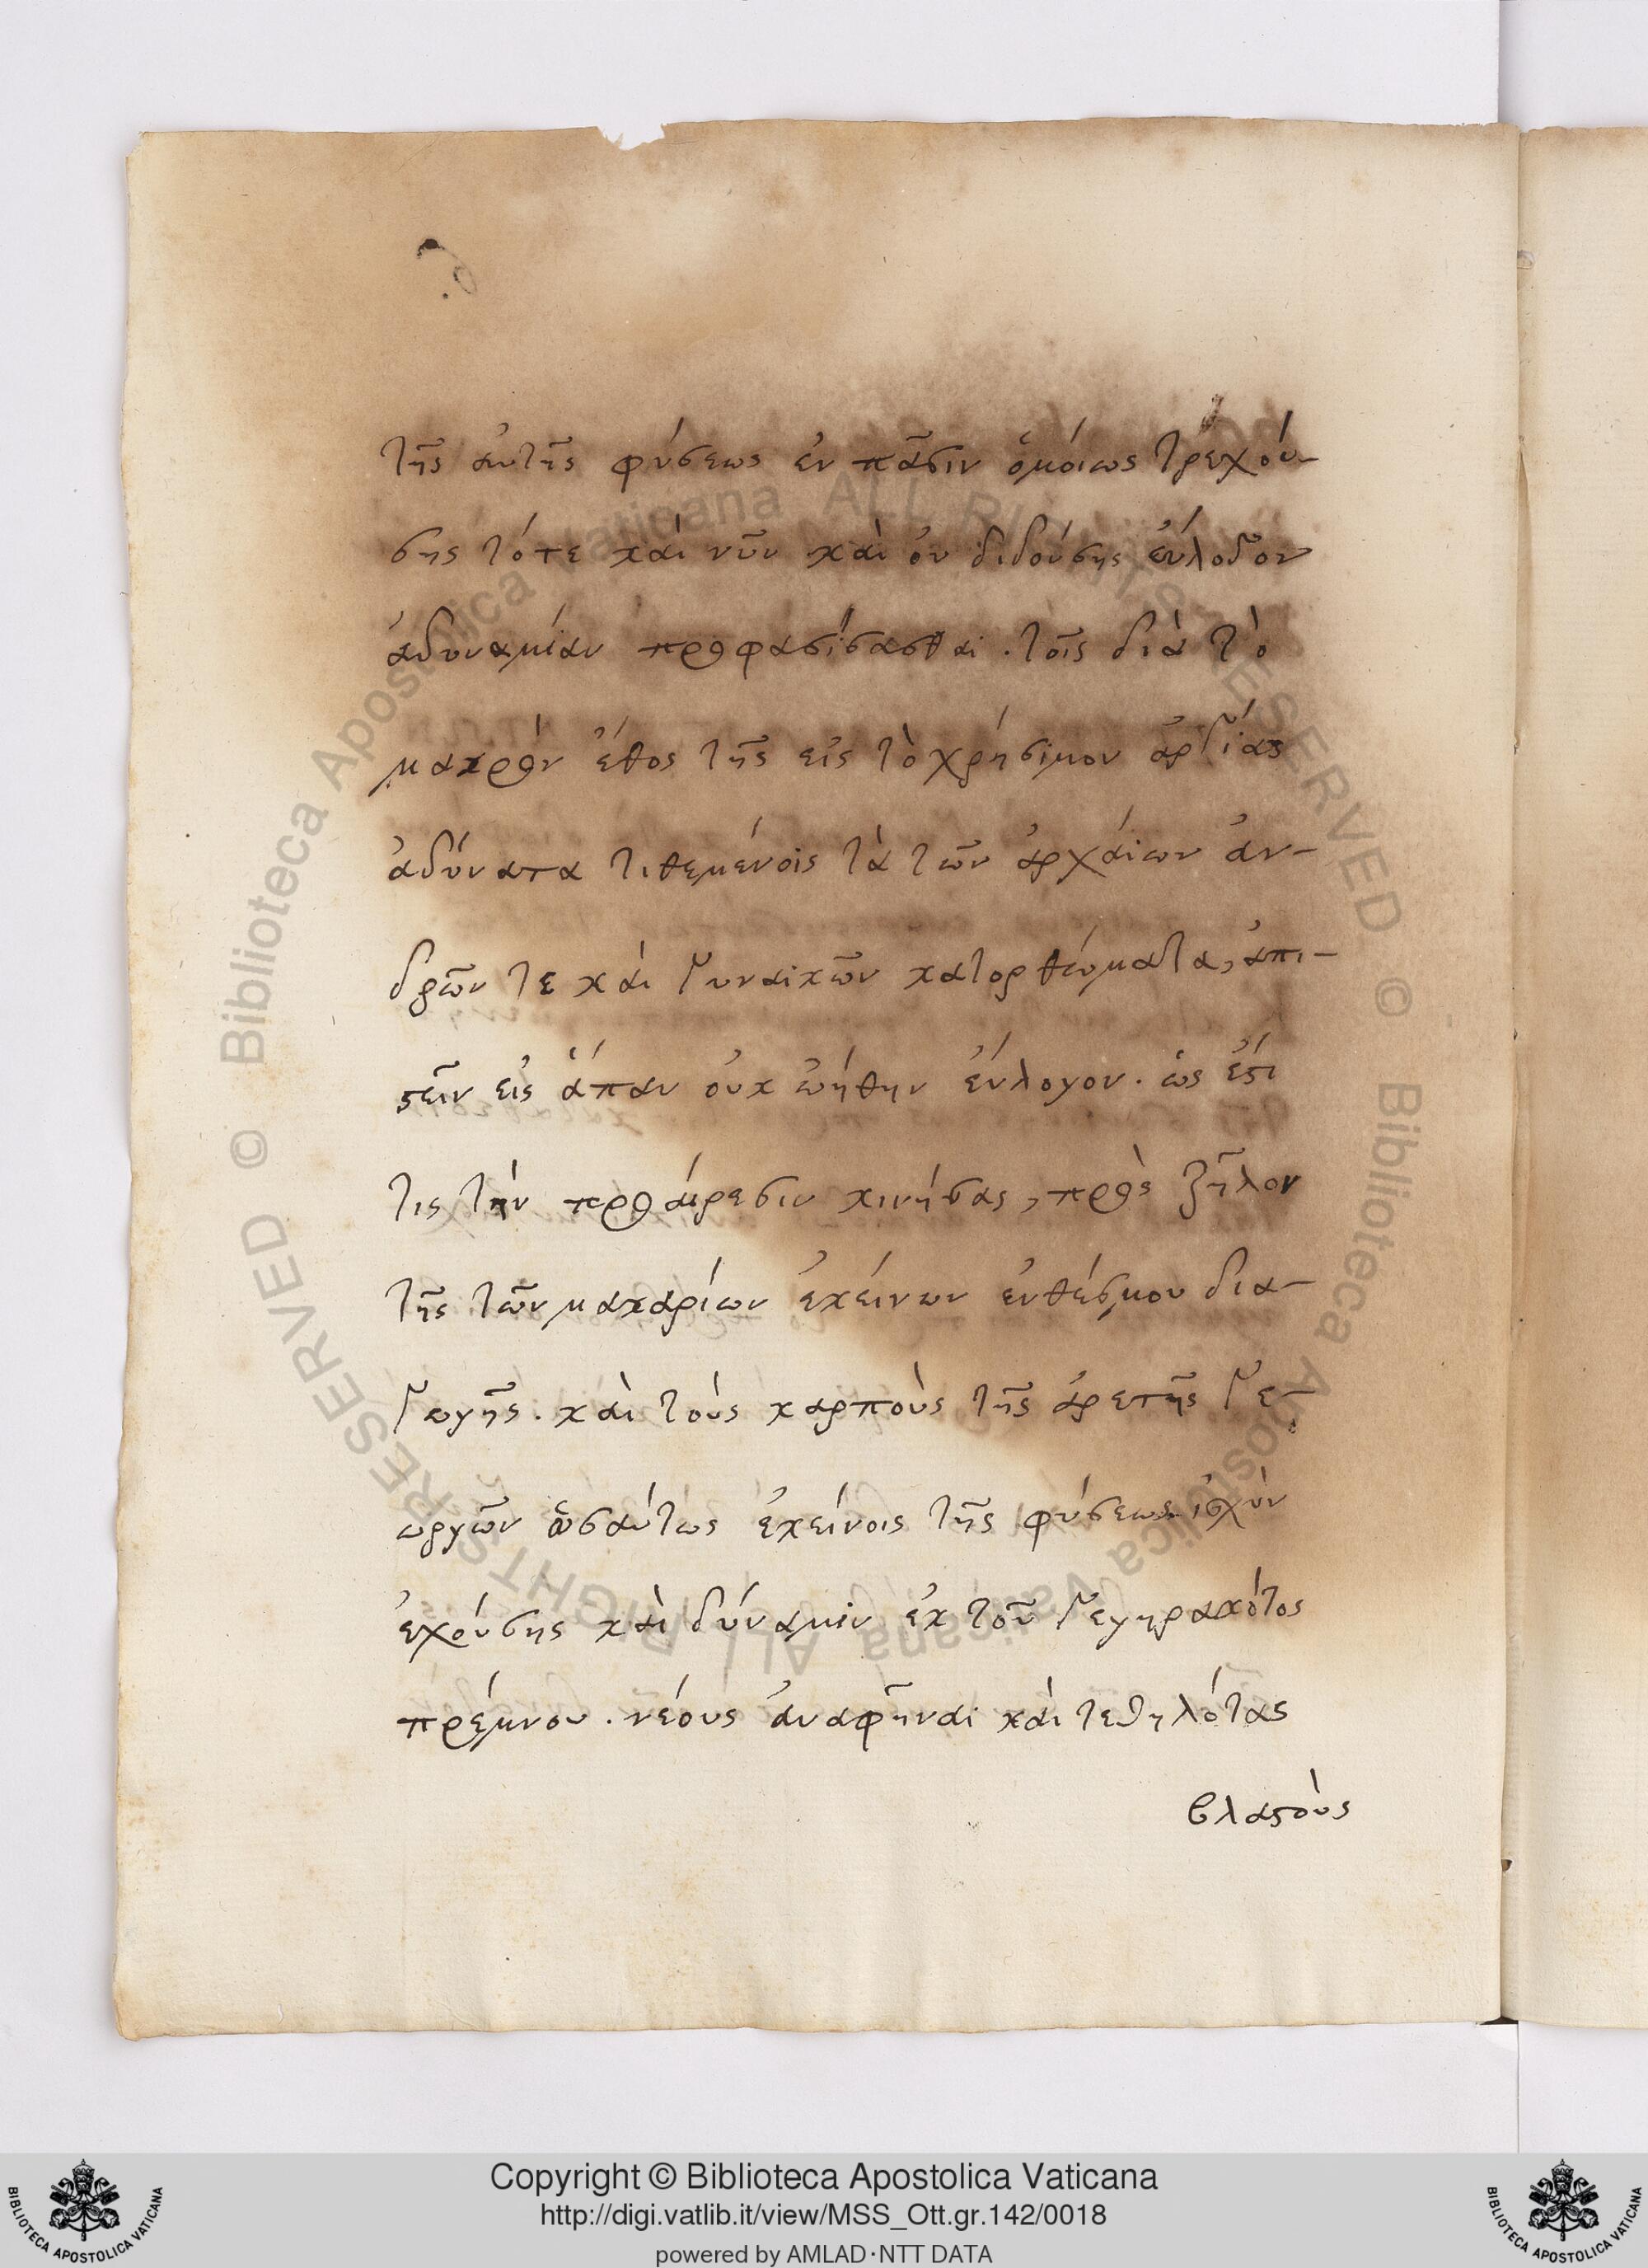 τῆς αὐτῆς φύσεως ἐν πᾶσιν ὁμοίως τρεχού-
σης τότε καὶ νῦν καὶ οὐ διδούσης εὔλογον
ἀδυναμίαν προφασίσασθαι . τοῖς διὰ τὸ
μακρὸν ἔθος τῆς εἰς τὸ χρήσιμον ἀργίας
ἀδύνατα τιθεμένοις τὰ τῶν ἀρχαίων ἀν-
δρῶν τε καὶ γυναικῶν κατορθώματα, ἀπι-
στεῖν εἰς ἅπαν οὐκ ᾠήθην εὔλογον . ὡς ἔτι
τις τὴν προαίρεσιν κινήσας, πρὸς ζῆλον
τῆς τῶν μακαρίων ἐκείνων ἐνθέσμου δια-
γωγῆς . καὶ τοὺς καρποὺς τῆς ἀρετῆς γε-
ωργῶν ὡσαύτως ἐκείνοις τῆς φύσεως ἰσχὺν
ἐχούσης καὶ δύναμιν ἐκ τοῦ γεγηρακότος
πρέμνου . νέους ἀναφῆναι καὶ τεθηλότας
βλαστοὺς
Copyright © Biblioteca Apostolica Vaticana
http://digi.vatlib.it/view/MSS_Ott.gr.142/0018
powered by AMLAD·NTT DATA
BIBLIOTECA APOSTOLICA VATICANA
BIBLIOTECA APOSTOLICA VATICANA
© Biblioteca Apostolica Vaticana ALL RIGHTS RESERVED © Biblioteca Apostolica Vaticana ALL RIGHTS RESERVED